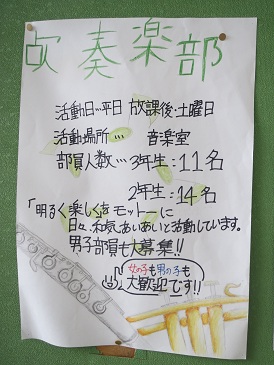 吹奏楽部
活動日…平日 放課後・土曜日
活動場所… 音楽室
部員人数…3年生:11名
2年生:14名
「明るく楽しくをモットーに
日々、和気あいあいと活動しています。
男子部員も大募集!!
女の子も男の子も
大歓迎です!!